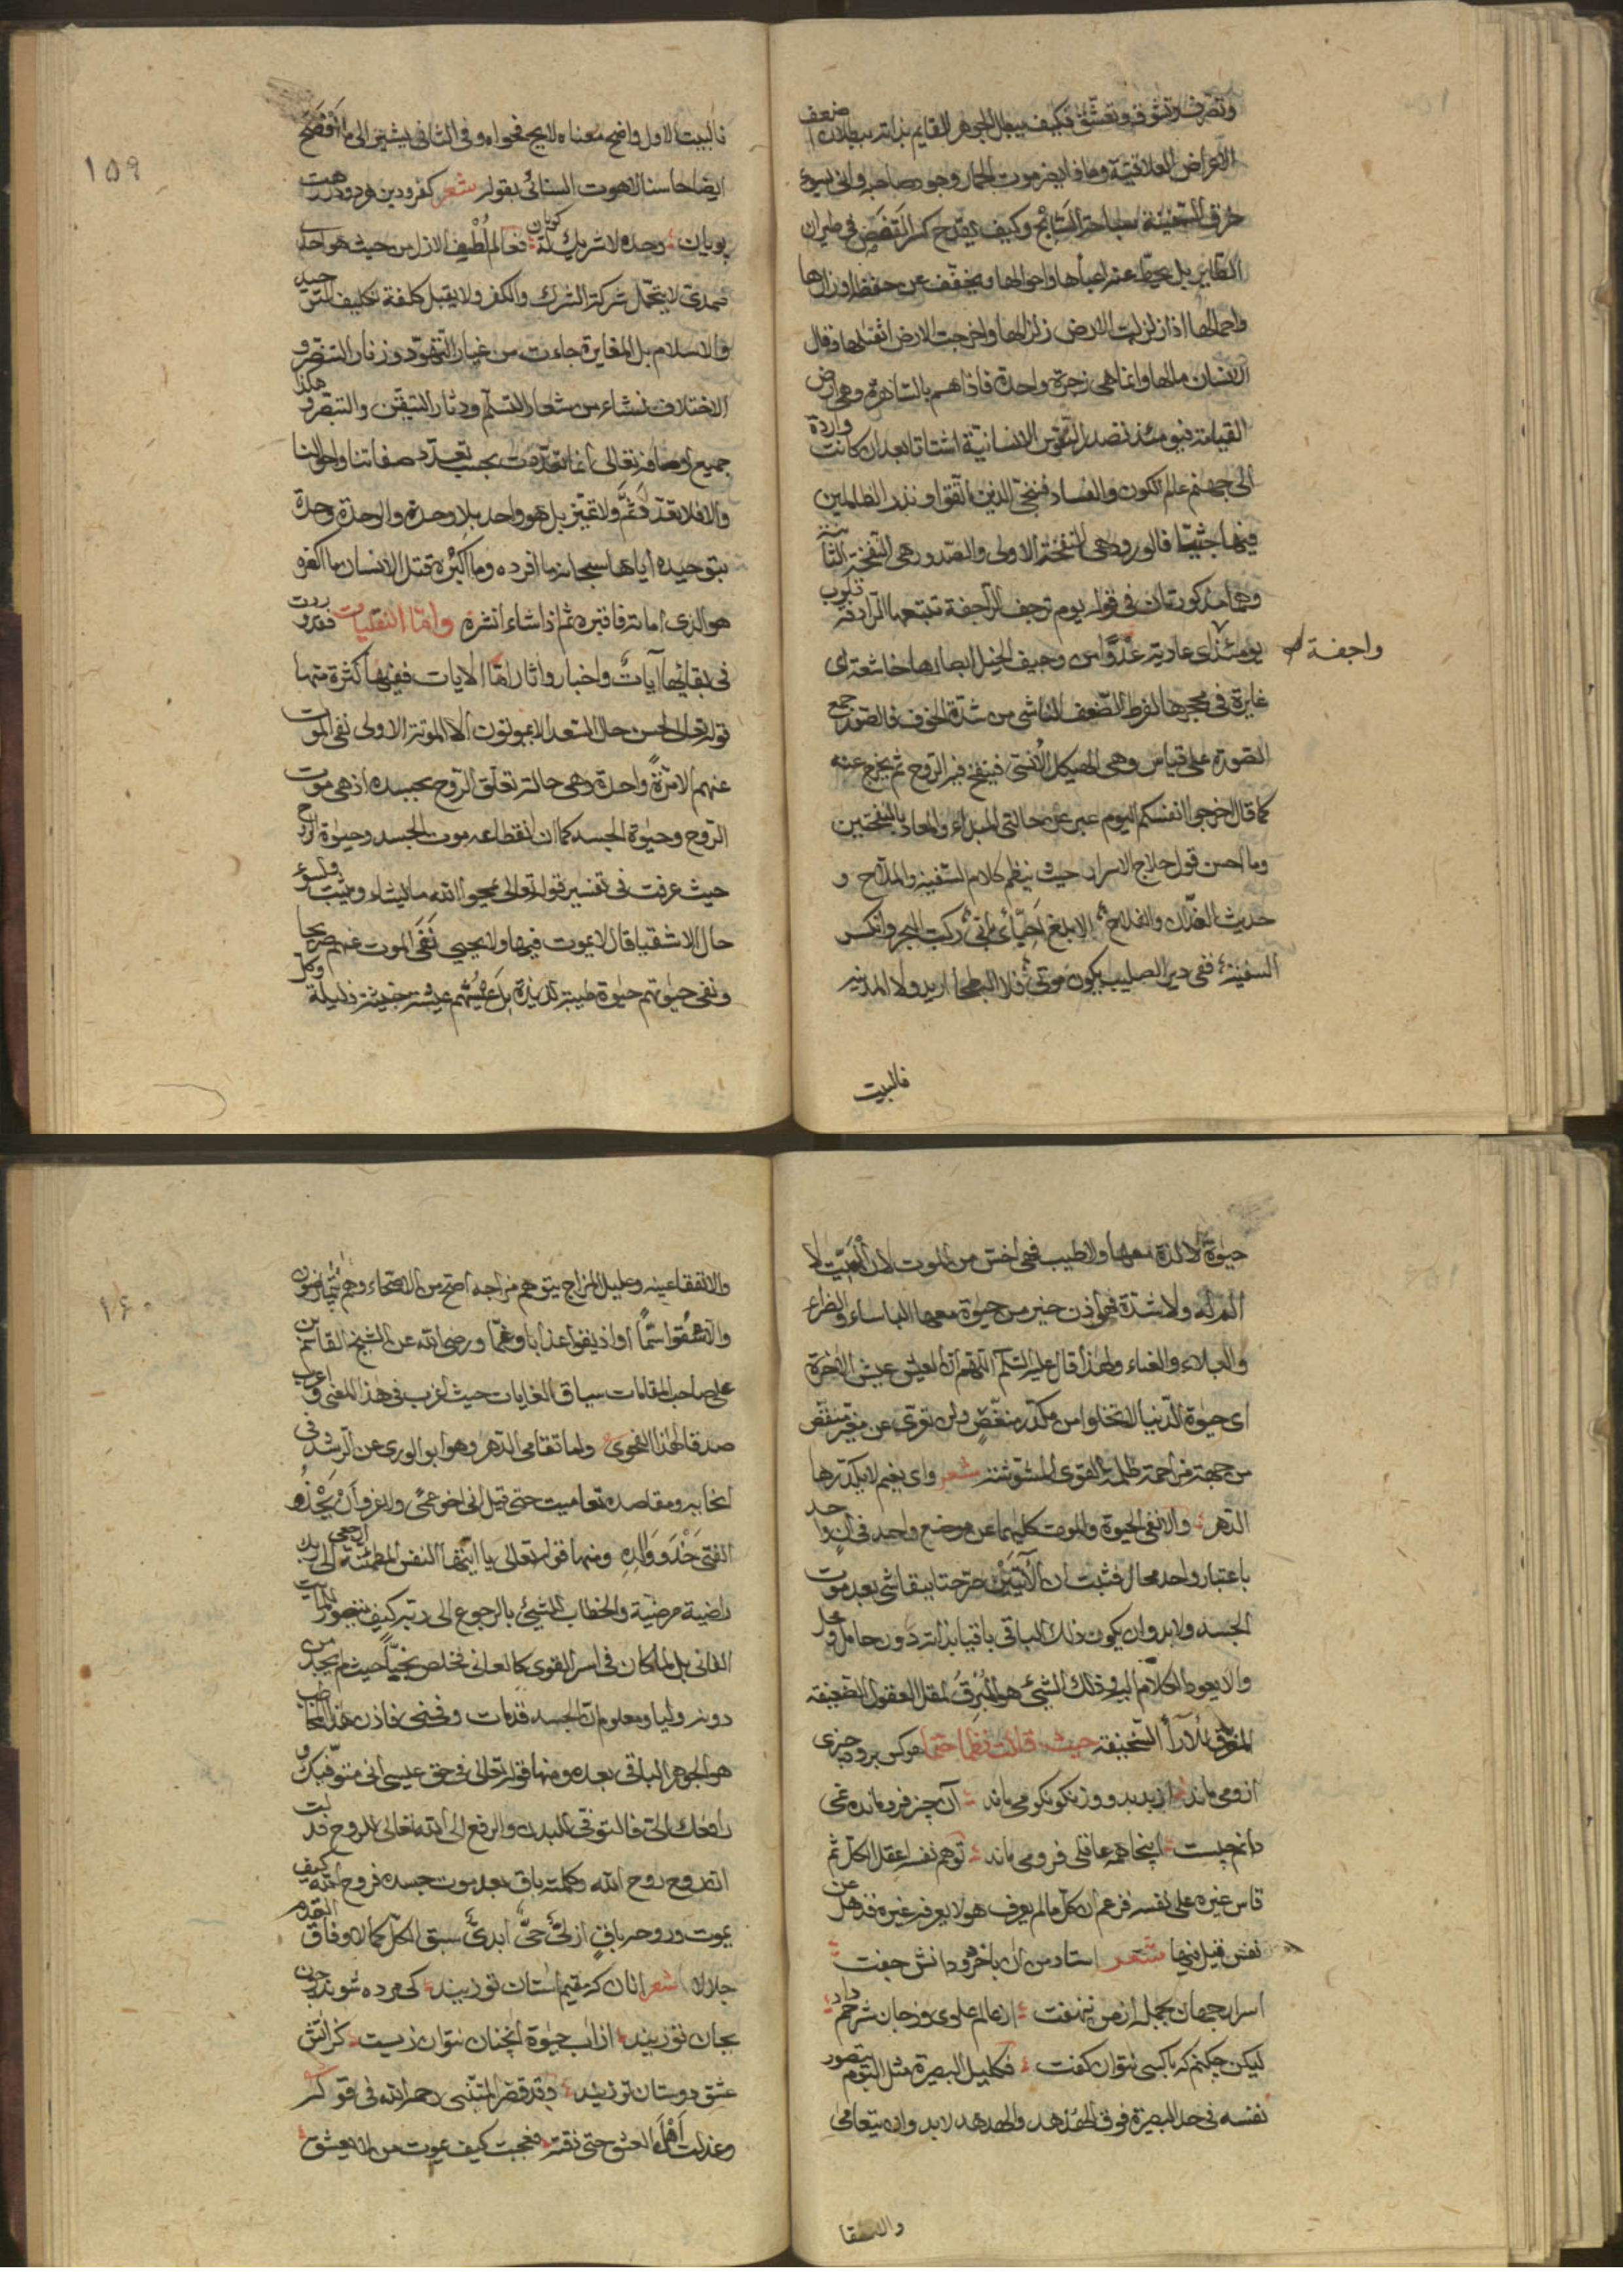 وتصرف وتشوق وتعشق فكيف يبطل الجوهر القايم بذاته ببطلان ضعف
الاعراض العلاقية وما ذا يضر موت الحمار وجود صاحبه وانى يسوغ
خرق السفينة سباحة السابح وكيف يقدح كسر القفص فى طيران
الطاير بل يحط عنه اعباها واحوالها ويخفف عن حفظه اوزارها
واحمالها اذا زلزلت الارض زلزالها واخرجت الارض اثقالها وقال
الانسان مالها وانما هى زجرة واحدة فاذا هم بالساهرة وهى ارض
القيامة فيومئذ تصدر النفوس الانسانية اشتاتا بعد ان كانت واردة
الى جهنم عالم الكون والفساد فننجى الذين اتقوا ونذر الظالمين
فيها جثيا فالورود هى النفخة الاولى والصدور هى النفخة الثانية
وهما مذكورتان فى قوله يوم ترجف الراجفة تتبعها الرادفة قلوب
يومئذ اى عادية عدوا من وجيف الخيل ابصارها خاشعة اى
واجفة
غايرة فى محجرها لفرط الضعف الناشى من شدة الخوف فالصور جمع
الصورة على قياس وهى الهيكل الانسى فينفخ فيه الروح ثم يخرج عنه
كما قال اخرجوا انفسكم اليوم عبر عن حالتى المبداء والمعاد بالنفختين
وما احسن قول حلاج الاسرار حيث ينظم كلام السفينة والملاح و
حديث الفدان والفلاح الا ابلغ احبائى بانى ركبت البحر وانكسر
السفينة ففى دير الصليب يكون موتى فلا البطحا اريد ولا المدينه
فالبيت
١٥٩
فالبيت الاول واضح معناه لايح فحواه وفى الثانى يشير الى ما افصح
ايضا حاسنا لاهوت السنائى بقوله شعر كفر ودين هر دو در رهت
پويان وحده لا شريك له گويان فعالم لطيف الازل من حيث هو احدى
صمدى لا يتحمل شركة الشرك والكفر ولا يقبل كلفة تكليف التوحيد
والاسلام بل المغايرة جاءت من غيار التهود وزنار التنصر و
الاختلاف نشاء من شعار التسلم ودثار التيقن والتبصر و هكذا
جميع اوصافه تعالى انما تعددت بحسب تعدد صفاتنا واحوالنا
والا فلا تعدد ثم ولا تميز بل هو واحد بلا وحدة والوحدة وحدة
بتوحيده اياها سبحانه ما افرده وما اكبره قتل الانسان ما اكفره
هو الذى اماته فاقبره ثم اذا شاء انشره واما النقليات فقد وردت
فى بقائها آيات واخبار واثار اما الايات ففيها كثرة منها
قوله تعالى الحسن حال السعدا لا يموتون الا الموتة الاولى نفى الموت
عنهم الا مرة واحدة وهى حالة تعلق الروح بجسده اذ هى موت
الروح وحيوة الجسد كما ان انقطاعه موت الجسد وحيوة الروح
حيث عرفت فى تفسير قوله تعالى يمحو الله ما يشاء ويثبت ولسوء
حال الاشقيا قال لا يموت فيها ولا يحيى نفى الموت عنهم صريحا
ونفى حيوتهم حيوة طيبة لذيذة بل عيشهم عيشة خبيثة ذليلة وكل
حيوة لا لذة معها ولا طيب فهى اخس من الموت لان الميت لا
الم له ولا شدة فهو اذن خير من حيوة معها الباساء والضراء
والبلاء والعناء ولهذا قال عليه السلم اللهم ان العيش عيش الاخرة
اى حيوة الدنيا لا تخلوا من مكدر منغص ولن تعرى عن مغير منقص
من جهة مزاحمة ظلمة القوى المشوشة شعر واى نعيم لا يكدرها
الدهر والا نفى الحيوة والموت كليهما عن موضع واحد فى ان واحد
باعتبار واحد محال فثبت ان الآيتين صرحتا ببقا شئ بعد موت
الجسد ولابد وان يكون ذلك الباقى باقيا بذاته دون حامل ومحل
والا يعود الكلام اليه وذلك الشئ هو المبرق لمقل العقول الضعيفة
المفرق للآراء السخيفة حيث قالت نظما ختما هر كس برود چيزى
ازو مى ماند از بد بد وز نكو نكو مى ماند آن چيز فرو مانده نمى
دانم چيست اينجا همه عاقلى فرو مى ماند توهم نفسه اعقل الكل ثم
قاس غيره على نفسه فزعم ان كل ما لم يعرف هو لا يعرفه غيره فذهل عن
نفس قيل فيها شعر استاد من ان با خرد و دانش جفت
اسرار جهان بجمله از من ننهفت از عالم علوى و ز جان شرحم داد
ليكن چكنم كه با كسى نتوان گفت فكليل البصيرة مثل البوم يتصور
نفسه فى حد البصيرة فوق الهدهد والهدهد لابد وان يتعامى
١٦٠
والا تفقا عينه وعليل المزاج يتوهم مزاجه اصح من الاصحاء وهم يتمارضون
والا سقوا سما او اذيقوا عذابا وغما ورضى الله عن الشيخ القاسم بن
على صاحب المقامات سياق الغايات حيث اغرب فى هذا المعنى واعرب
صدقا لهذا الفحوى ولما تعامى الدهر وهو ابو الورى عن الرشد فى
انحايه ومقاصده تعاميت حتى قيل انى اخو عمى ولا غرو ان يحذو
الفتى حذو والده ومنها قوله تعالى يا ايتها النفس المطمئنة ارجعى الى ربك
راضية مرضية والخطاب للشئ بالرجوع الى ربه كيف يتصور للمايت
الفانى بل لما كان فى اسر القوى كالعانى تخلص نجيا حيث لم يجد من
دونه وليا ومعلوم ان الجسد قد مات وفنى فاذن هذا المخاطب
هو الجوهر الباقى بعده ومنها قوله تعالى فى حق عيسى انى متوفيك و
رافعك الى فالتوفى للبدن والرفع الى الله تعالى للروح قد ثبت
انه روح الله وكلمته باق بعد موت جسده فروح الله كيف
يموت وروحه باق ازلى حى ابدى سبق الكل كمالا وفاق القدم
جلالا شعر انان كه مقيم استان تو زيند كى مرده شوند چون
بجان تو زيند از اب حيوة انچنان نتوان زيست كز آتش
عشق دوستان تو زيند وقد قصر المتنبى رحمه الله فى قوله
وعذلت اهل العشق حتى ذقته فعجبت كيف يموت من لا يعشق